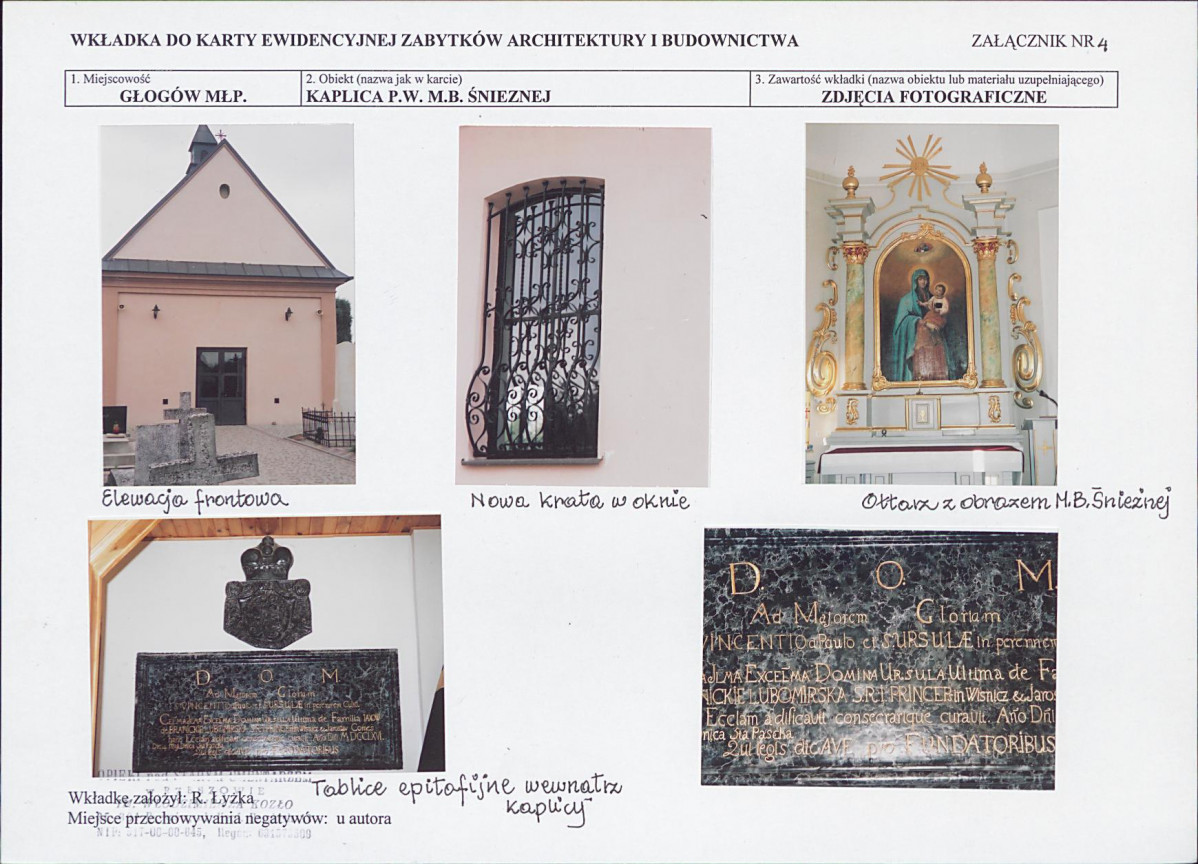 WKŁADKA DO KARTY EWIDENCYJNEJ ZABYTKÓW ARCHITEKTURY I BUDOWNICTWA
ZAŁĄCZNIK NR 4
1. Miejscowość
GŁOGÓW MŁP.
2. Obiekt (nazwa jak w karcie)
KAPLICA P.W. M.B. ŚNIEZNEJ
3. Zawartość wkładki (nazwa obiektu lub materiału uzupełniającego)
ZDJĘCIA FOTOGRAFICZNE
Elewacja frontowa
Nowa krata w oknie
Ołtarz z obrazem M.B. Śnieżnej
D. O. M.
Ad Majorem Gloriam
D. O. M.
Ad Majorem Gloriam
VINCENTIO a Paulo et S. URSULÆ in perennem
EXCELMA DOMINA URSULA Ultima de
LUBOMIRSKA S.R.I. PRINCEP. in Wisnicz & Jaros
Ecclam ædificavit consecrarique curavit. Año Dñi
2ui legis dic AVE pro FUNDATORIBUS
Tablice epitafijne wewnątrz
kaplicy
Wkładkę założył: R. Łyżka
Miejsce przechowywania negatywów: u autora